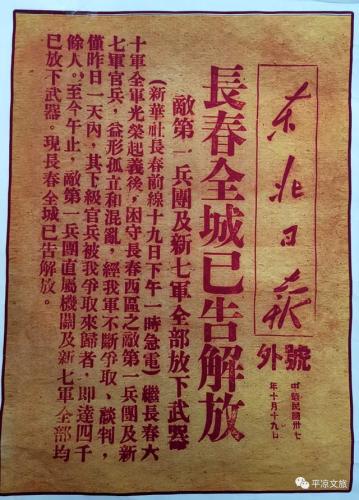 东北日报
號外
中華民國卅七
年十月十九日
長春全城已告解放
敵第一兵團及新七軍全部放下武器
(新華社長春前線十九日下午一時急電)繼長春六
十軍全軍光榮起義後,困守長春西區之敵第一兵團及新
七軍官兵,益形孤立和混亂,經我軍不斷爭取、談判,
僅昨日一天內,其下級官兵被我爭取來歸者,即達四千
餘人。至今午止,敵第一兵團直屬機關及新七軍全部均
已放下武器。現長春全城已告解放。
平凉文旅